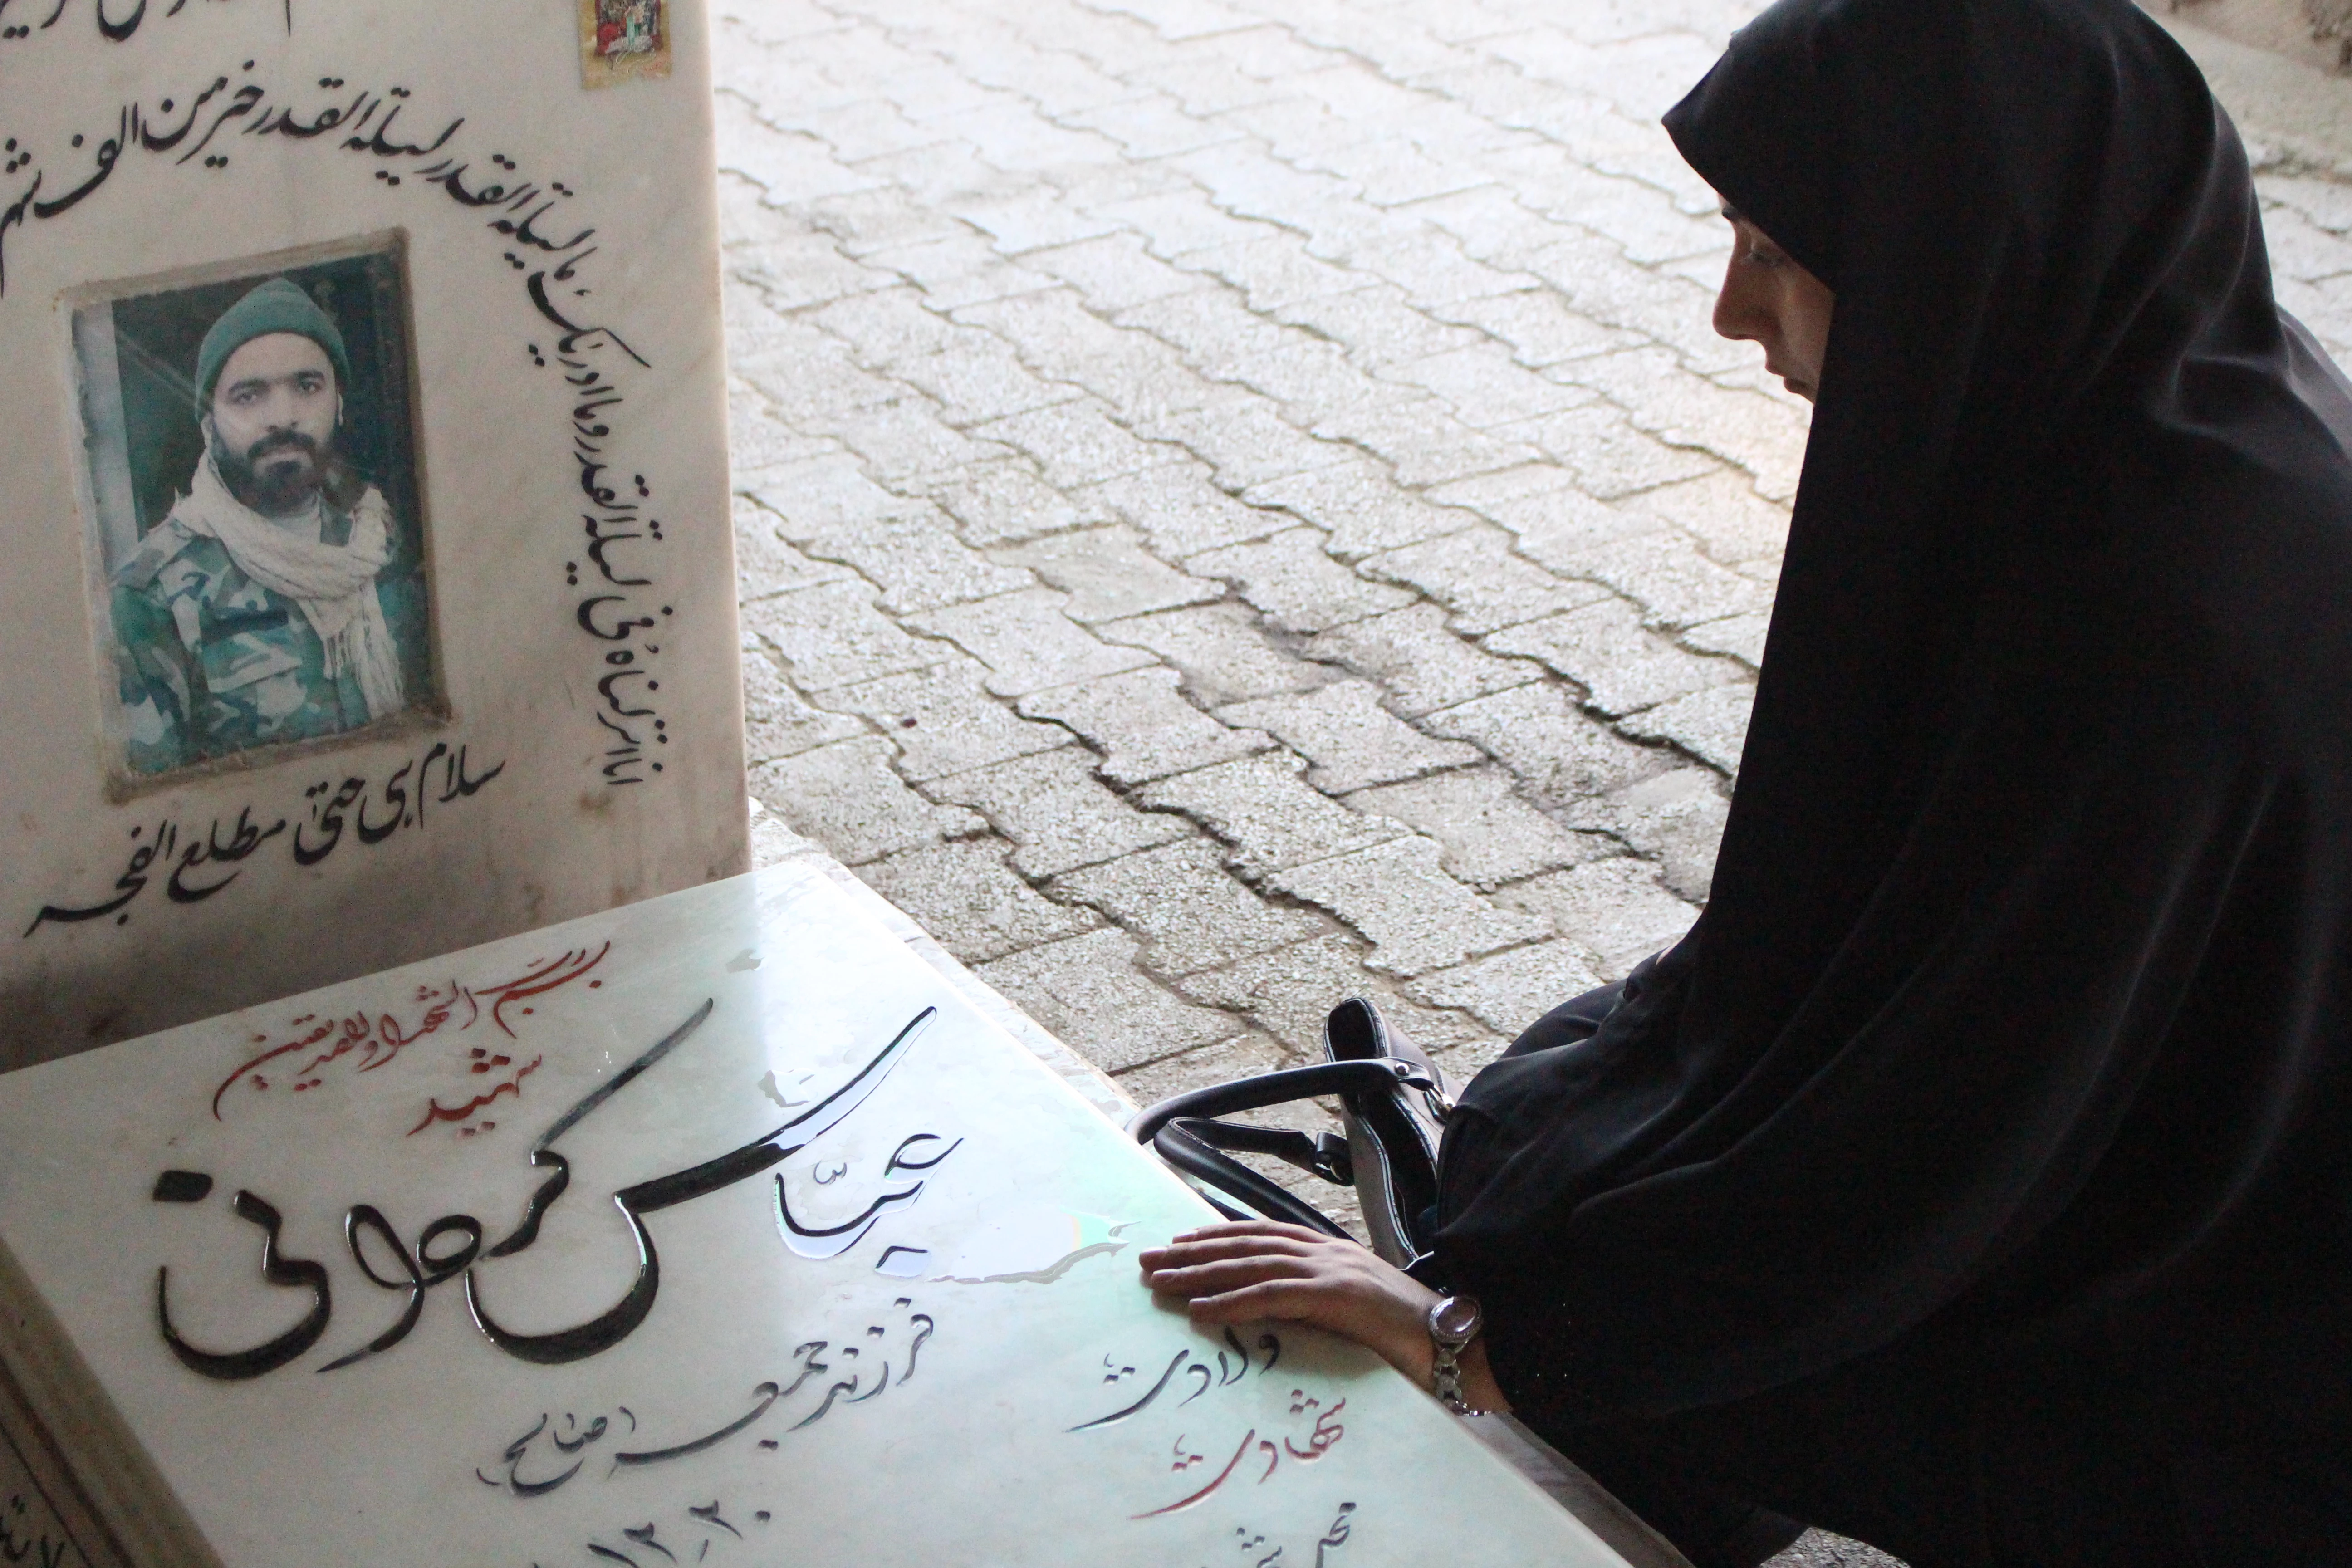 انا انزلناه في ليلة القدر وما ادريك ما ليلة القدر ليلة القدر خير من الف شهر
سلام هی حتی مطلع الفجر
بسم رب الشهدا و الصدیقین
شهید
عباس کردانی
فرزند جمعه (صالح)
ولادت
شهادت